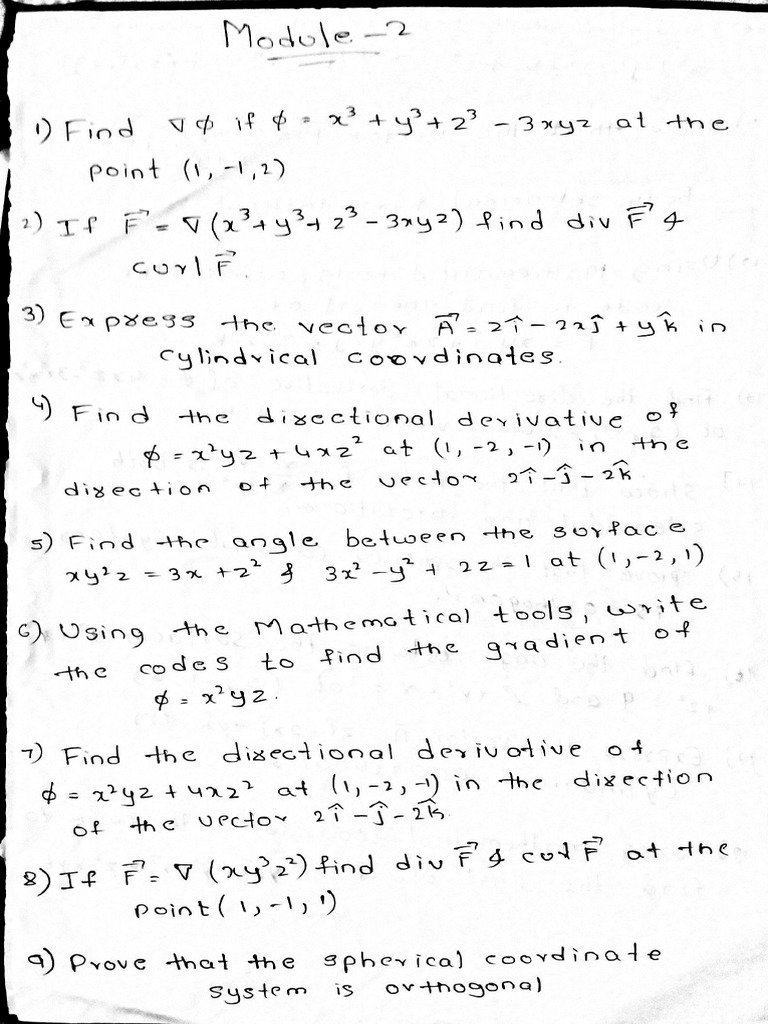 Module-2
1) Find ∇φ if φ = x³ + y³ + z³ - 3xyz at the
point (1, -1, 2)
2) If F⃗ = ∇(x³ + y³ + z³ - 3xyz) find div F⃗ &
curl F⃗.
3) Express the vector A⃗ = zî - 2xĵ + yk̂ in
cylindrical coordinates.
4) Find the directional derivative of
φ = x²yz + 4xz² at (1, -2, -1) in the
direction of the vector 2î - ĵ - 2k̂.
5) Find the angle between the surface
xy²z = 3x + z² & 3x² - y² + 2z = 1 at (1, -2, 1)
6) Using the Mathematical tools, write
the codes to find the gradient of
φ = x²yz.
7) Find the directional derivative of
φ = x²yz + 4xz² at (1, -2, -1) in the direction
of the vector 2î - ĵ - 2k̂.
8) If F⃗ = ∇(xy³z²) find div F⃗ & curl F⃗ at the
point (1, -1, 1)
9) Prove that the spherical coordinate
system is orthogonal